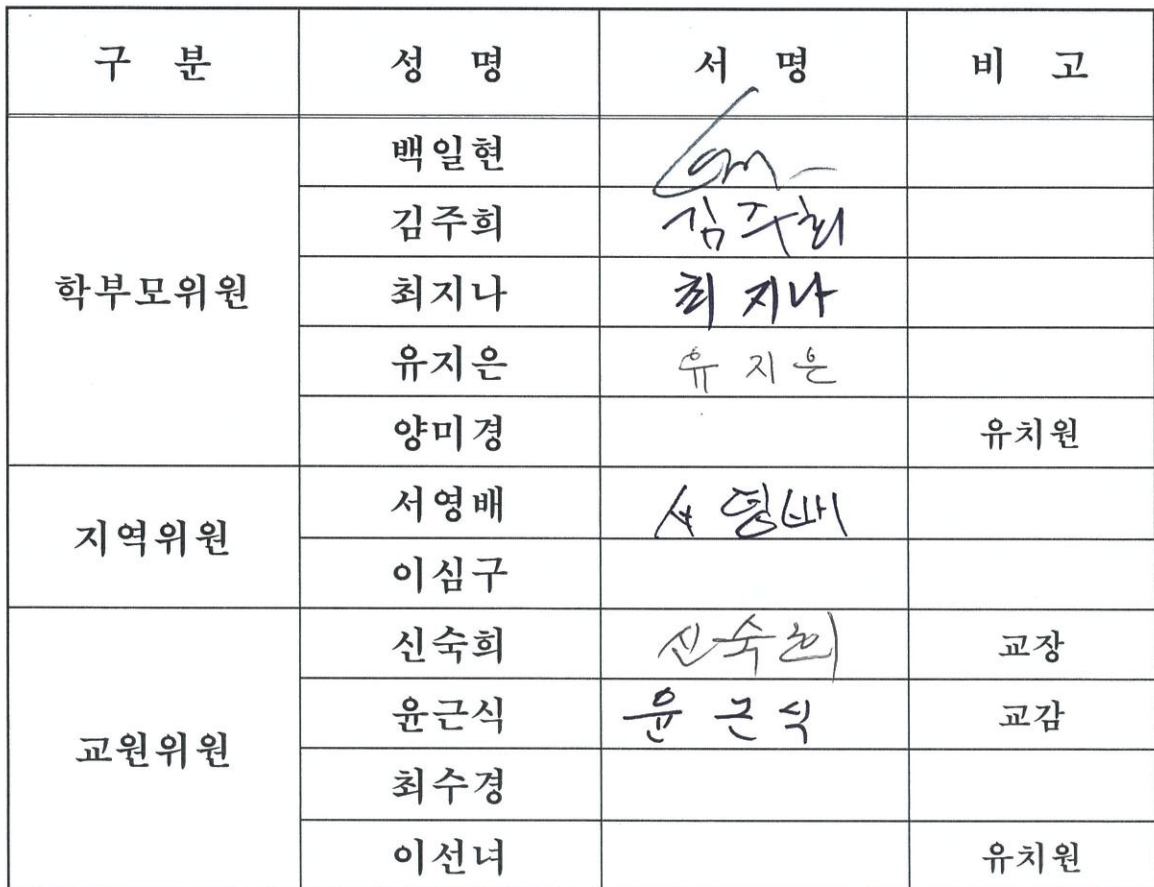 구 분 성 명 서 명 비 고
학부모위원
백일현
김주희 김주희
최지나 최지나
유지은 유지은
양미경 유치원
지역위원
서영배 서영배
이심구
교원위원
신숙희 신숙희 교장
윤근식 윤근식 교감
최수경
이선녀 유치원